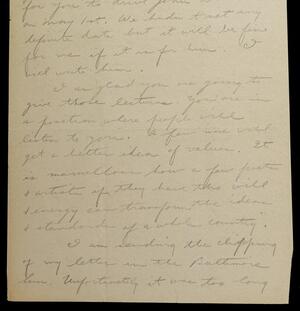 for you to drive John
on May 1st. We hadn't set any
definite date but it will be fine
for me if it is for him. I
will write him.
I am glad you are going to
give those lectures. You are in
a position where people will
listen to you. A few more will
get a better idea of values. It
is marvellous how a few poets
& artists if they have the will
& energy can transform the ideas
& standards of a whole country.
I am sending the clipping
of my letter in the Baltimore
Sun. Unfortunately it was too long